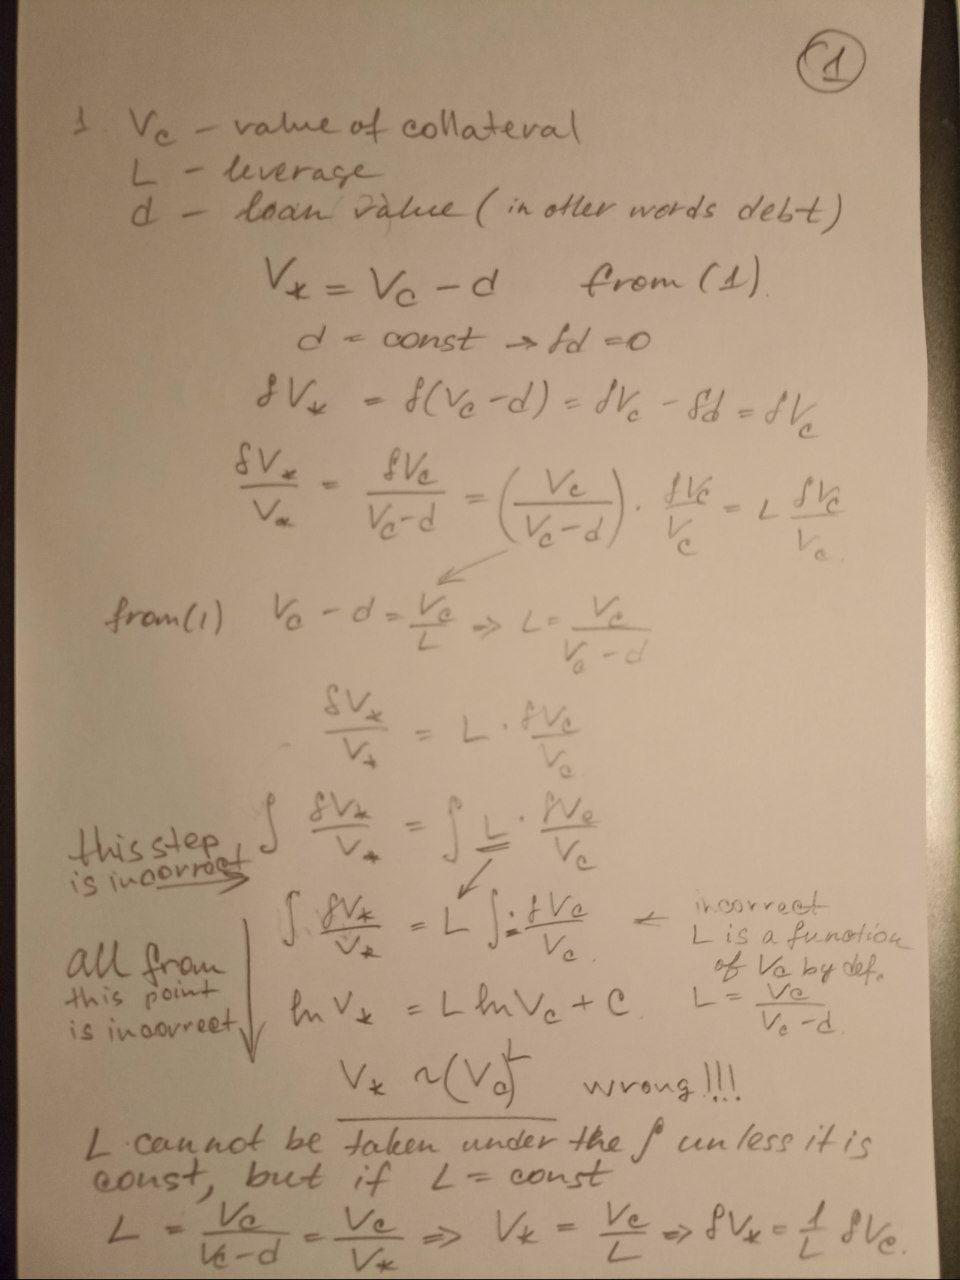 1
1. Vc – value of collateral
L – leverage
d – loan value (in other words debt)
V* = Vc – d from (1).
d = const → δd = 0
δV* = δ(Vc – d) = δVc – δd = δVc
δV*/V* = δVc/(Vc–d) = (Vc/(Vc–d)) · δVc/Vc = L δVc/Vc.
from (1) Vc – d = Vc/L ⇒ L = Vc/(Vc – d)
δV*/V* = L · δVc/Vc
∫ δV*/V* = ∫ L · δVc/Vc
this step
is incorrect
∫ δV*/V* = L ∫ · δVc/Vc. ← incorrect
L is a function
of Vc by def.
L = Vc/(Vc–d).
all from
this point
is incorrect
ln V* = L ln Vc + C.
V* ~ (Vc)^L wrong!!!
L cannot be taken under the ∫ unless it is
const, but if L = const
L = Vc/(Vc–d) = Vc/V* ⇒ V* = Vc/L ⇒ δV* = 1/L δVc.